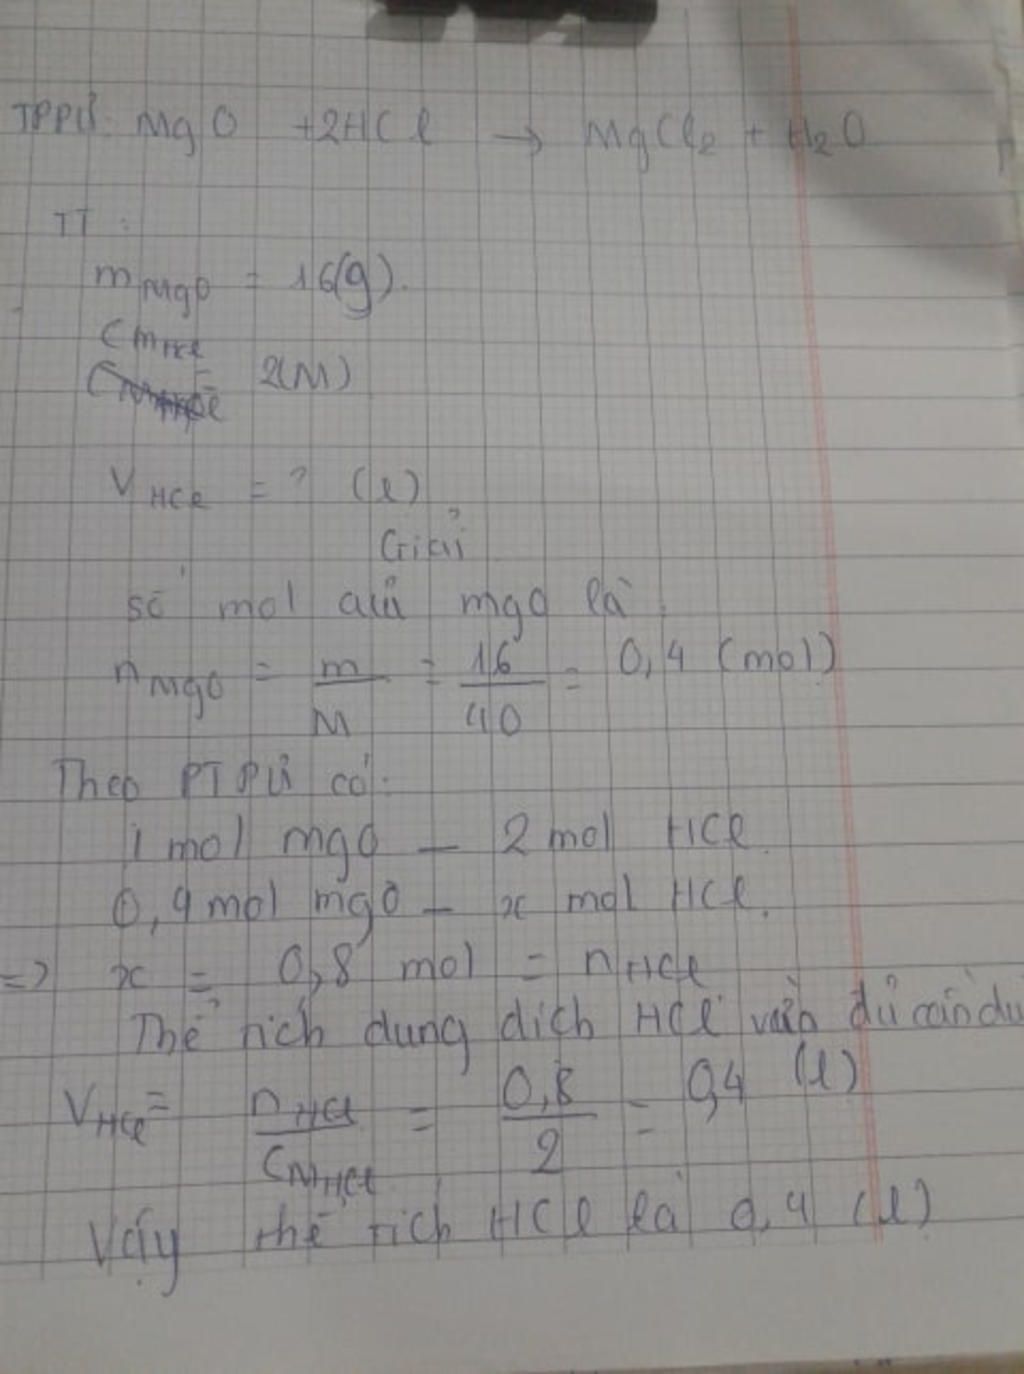 TPPƯ: MgO +2HCl → MgCl2 + H2O
TT:
mMgO = 16(g).
CMHCl = 2(M)
VHCl = ? (l)
Giải
số mol của MgO là
nMgO = m/M = 16/40 = 0,4 (mol)
Theo PTPƯ có:
1 mol MgO — 2 mol HCl.
0,4 mol MgO — x mol HCl.
=> x = 0,8 mol = nHCl
Thể tích dung dịch HCl vừa đủ cần dù
VHCl = nHCl/CMHCl = 0,8/2 = 0,4 (l)
Vậy thể tích HCl là 0,4 (l)